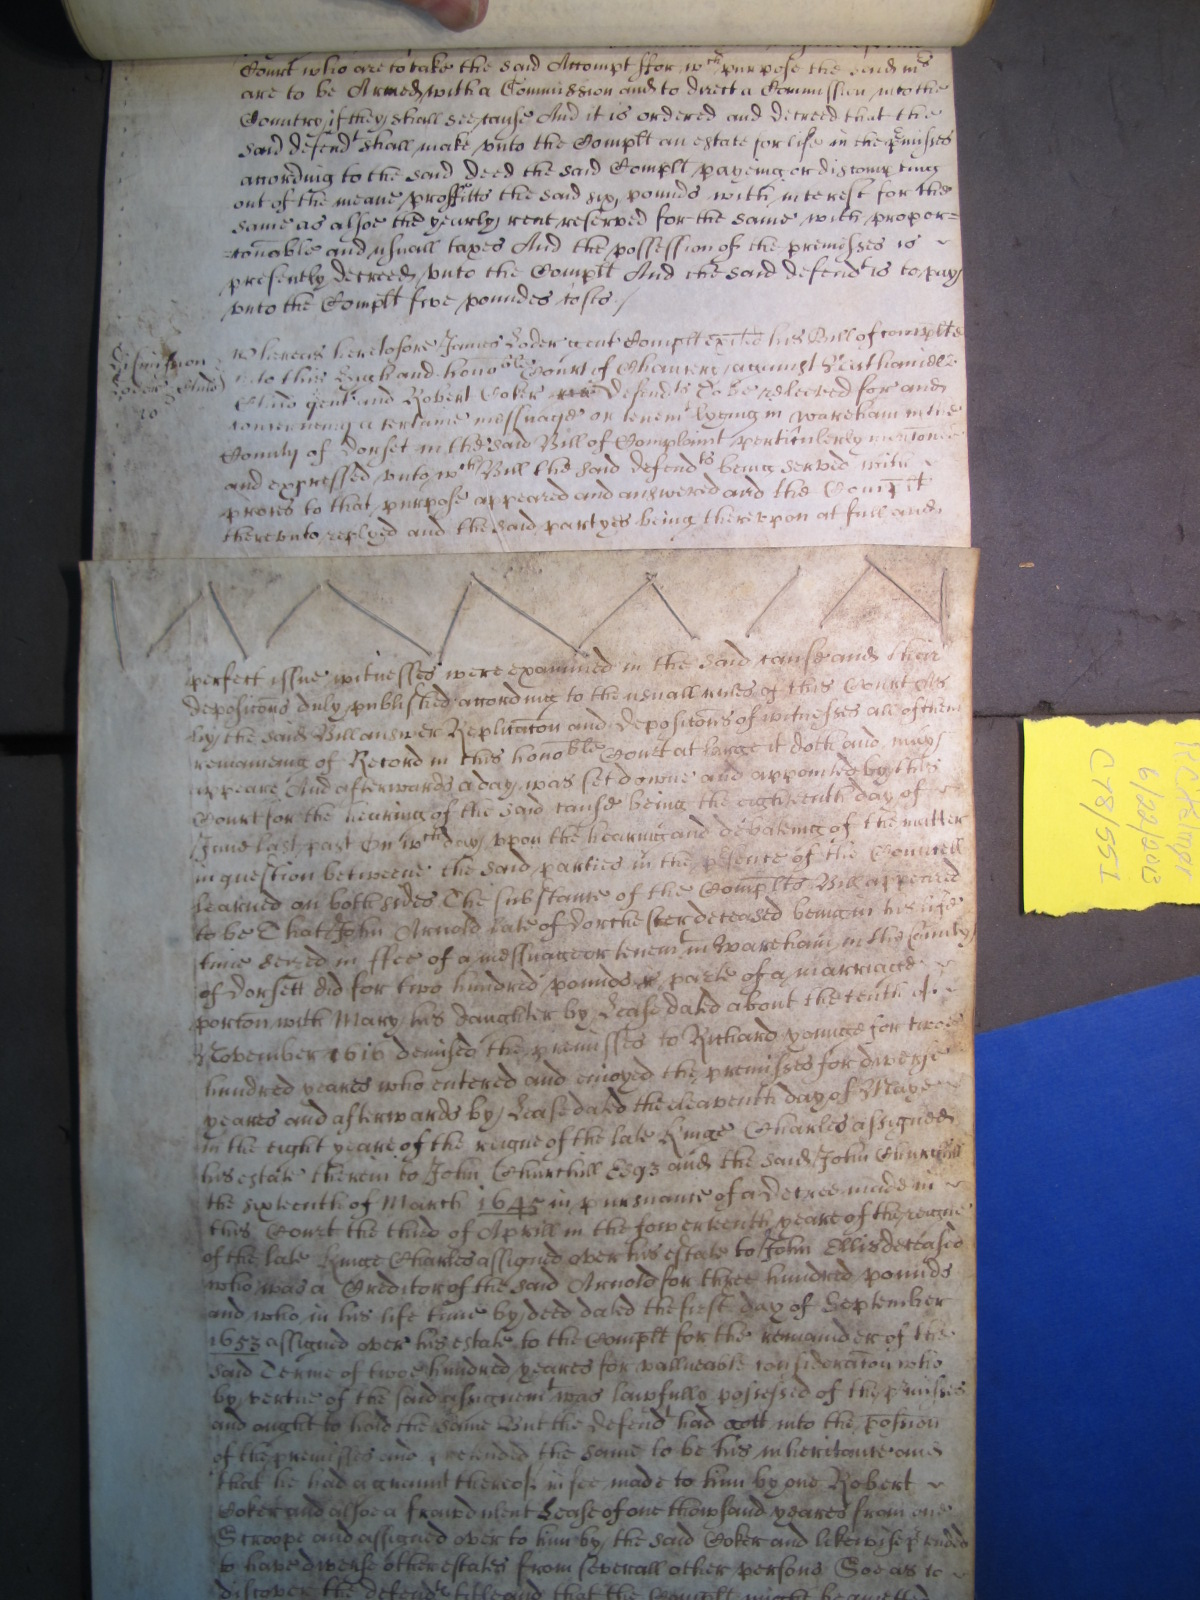 Court who are to take the said Accompt ffor wch purpose the said mr
are to be Armed with a Commission and to direct a Commission into the
Country if they shall see cause And it is ordered and decreed that the
said defendt shall make unto the Complt an estate for life in the premisses
according to the said deed the said Complt payeing or discompting
out of the meane proffitts the said six pounds with interest for the
same as alsoe the yearly rent reserved for the same with propor=
=tonable and usuall taxes And the possession of the premisses is
presently decreed unto the Complt And the said defendt is to pay
unto the Complt five poundes costs /
Whereas heretofore James Loder gent Complt exited his Bill of complt
into this high and honoble Court of Chancery against
gent and Robert Coker defendts To be releeved for and
concerneing a certaine messuage or tenemt lyeing in Wareham in the
County of Dorset in the said Bill of Complaint perticulerly menconed
and expressed unto wch Bill the said defendts being served with
proces to that purpose appeared and answered and the Complt
thereunto replyed and the said partyes being thereupon at full and
perfect issue witnesses were examined in the said cause and their
depositons duly published according to the usuall rules of this Court As
by the said Bill answer Replicaton and depositons of witnesses all of them
remaineing of Record in this honoble Court at large it doth and may
appeare And afterwards a day was set downe and appointed by this
Court for the hearing of the said cause being the eighteenth day of
June last past On wch day upon the hearing and debateing of the matter
in question betweene the said parties in the psence of the Councell
learned on both sides The substance of the Complts Bill appeared
to be That John Arnold late of Dorchester deceased being in his life
time seized in ffee of a messuage or tenemt in Wareham in the County
of Dorsett did for two hundred pounds parte of a marriage
porton with Mary his daughter by Lease dated about the tenth of
November 1616 demised the premisses to Richard younge for twoe
hundred yeares who entered and enioyed the premisses for diverse
yeares and afterwards by Lease dated the eleaventh day of Maye
in the eight yeare of the reigne of the late Kinge Charles assigned
his estate therein to John Churchill Esqr and the said John Churchill
the sixteenth of March 1645 in pursuance of a Decree made in
this Court the third of Aprill in the fowerteenth yeare of the reigne
of the late Kinge Charles assigned over his estate to John Ellis deceased
who was a Creditor of the said Arnold for three hundred pounds
and who in his life time by deed dated the first day of September
1653 assigned over his estate to the Complt for the remainder of the
said Terme of twoe hundred yeares for valueable consideraton who
by vertue of the said assignemt was lawfully possessed of the pmisses
and ought to hold the same But the defendt had gott into the possion
of the premisses and pretended the same to be his inheritance and
that he had a graunt thereof in fee made to him by one Robert
Coker and alsoe a fraudulent Lease of one thowsand yeares from one
Stroope and assigned over to him by the said Coker and likewise ptended
to have diverse other estates from severall other persons Soe as to
discover the defendts title and that the Complt might be
C78/551
6/22/2013